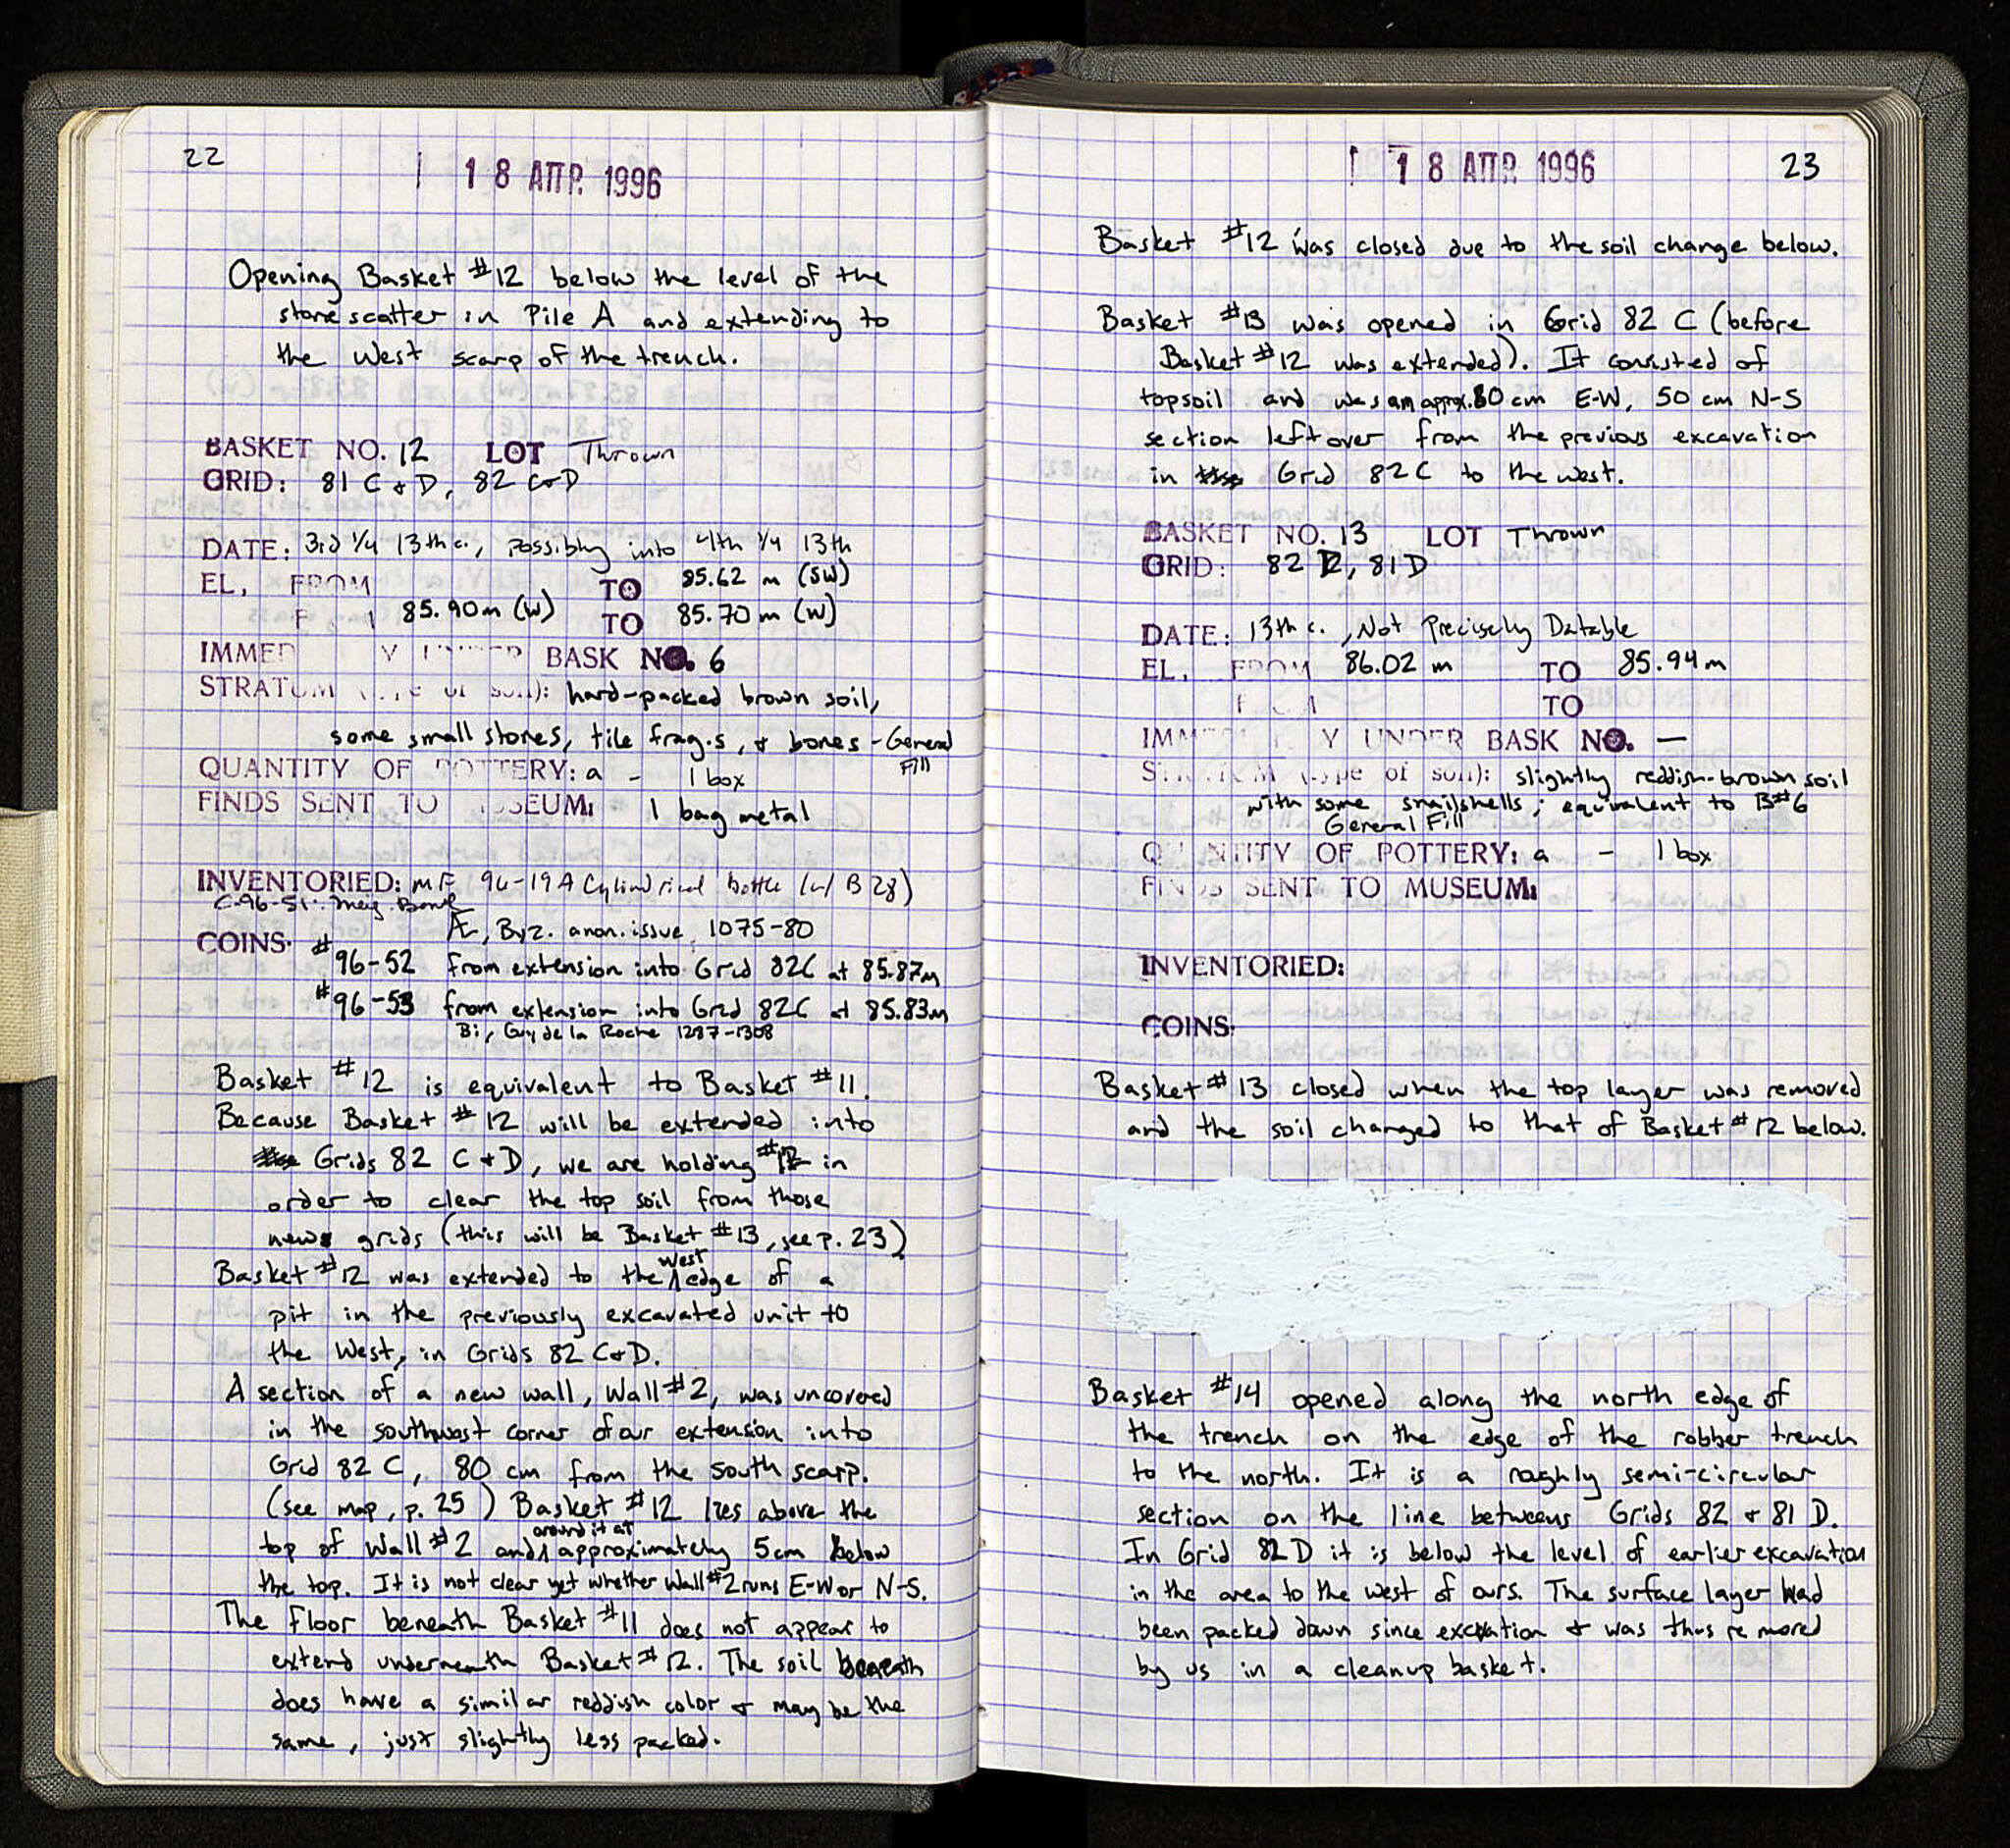 22
18 ΑΠΡ. 1996
Opening Basket #12 below the level of the
stone scatter in Pile A and extending to
the West scarp of the trench.
BASKET NO. 12 LOT Thrown
GRID: 81 C & D, 82 C & D
DATE: 3rd 1/4 13th c., possibly into 4th 1/4 13th
EL, FROM TO 85.62 m (SW)
85.90m (W) TO 85.70 m (W)
BASK NO. 6
STRATUM (type of soil): hard-packed brown soil,
some small stones, tile frag.s, & bones - General
Fill
QUANTITY OF POTTERY: a - 1 box
FINDS SENT TO MUSEUM: 1 bag metal
INVENTORIED: MF 96-19A Cylindrical bottle (w/ B28)
C-96-51: Bowl
Æ, Byz. anon. issue, 1075-80
COINS: #96-52 from extension into Grid 82C at 85.87m
#96-53 from extension into Grid 82C at 85.83m
Bi, Guy de la Roche 1287-1308
Basket #12 is equivalent to Basket #11.
Because Basket #12 will be extended into
Grids 82 C & D, we are holding #12 in
order to clear the top soil from those
new grids (this will be Basket #13, see p. 23)
Basket #12 was extended to the west edge of a
pit in the previously excavated unit to
the West, in Grids 82 C & D.
A section of a new wall, Wall #2, was uncovered
in the southwest corner of our extension into
Grid 82 C, 80 cm from the south scarp.
(see map, p. 25) Basket #12 lies above the
top of Wall #2 and around it at approximately 5cm below
the top. It is not clear yet whether Wall #2 runs E-W or N-S.
The floor beneath Basket #11 does not appear to
extend underneath Basket #12. The soil beneath
does have a similar reddish color & may be the
same, just slightly less packed.
18 ΑΠΡ. 1996
23
Basket #12 was closed due to the soil change below.
Basket #13 was opened in Grid 82 C (before
Basket #12 was extended). It consisted of
topsoil and was an approx. 80 cm E-W, 50 cm N-S
section leftover from the previous excavation
in Grid 82C to the west.
BASKET NO. 13 LOT Thrown
GRID: 82 D, 81 D
DATE: 13th c., Not Precisely Datable
EL, FROM 86.02 m TO 85.94 m
TO
IMMEDIATELY UNDER BASK NO. —
STRATUM (type of soil): slightly reddish-brown soil
with some snailshells; equivalent to B#6
General Fill
QUANTITY OF POTTERY: a - 1 box
FINDS SENT TO MUSEUM:
INVENTORIED:
COINS:
Basket #13 closed when the top layer was removed
and the soil changed to that of Basket #12 below.
Basket #14 opened along the north edge of
the trench on the edge of the robber trench
to the north. It is a roghly semi-circular
section on the line betweens Grids 82 & 81 D.
In Grid 82D it is below the level of earlier excavation
in the area to the west of ours. The surface layer had
been packed down since excvation & was thus removed
by us in a cleanup basket.